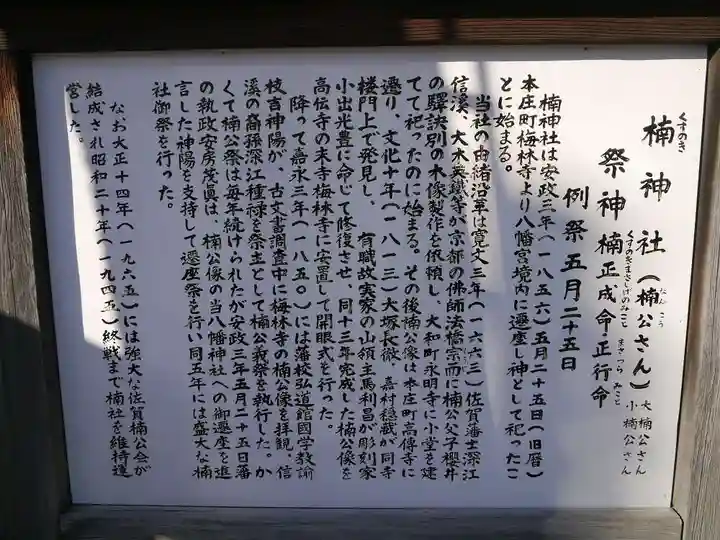 楠神社（楠公さん）大楠公さん 小楠公さん
くすのき なんこう
祭神 楠正成命・正行命
くすのきまさしげのみこと まさつら みこと
例祭 五月二十五日
楠神社は安政三年（一八五六）五月二十五日（旧暦）
本庄町梅林寺より八幡宮境内に遷座し神として祀ったこ
とに始まる。
当社の由緒沿革は寛文三年（一六六三）佐賀藩士深江
信溪、大木英鐵等が京都の佛師法橋宗而に楠公父子櫻井
の驛訣別の木像製作を依頼し、大和町永明寺に小堂を建
てて祀ったのに始まる。その後楠公像は本庄町高傳寺に
遷り、文化十年（一八一三）大塚長徹、嘉村穏蔵が同寺
楼門上で発見し、有職故実家の山領主馬利昌が彫刻家
小出光豊に命じて修復させ、同十三年完成した楠公像を
高伝寺の末寺梅林寺に安置して開眼式を行った。
降って嘉永三年（一八五〇）には藩校弘道館國学教諭
枝吉神陽が、古文書調査中に梅林寺の楠公像を拝観、信
溪の裔孫深江種禄を祭主として楠公義祭を執行した。か
くて楠公祭は毎年続けられたが安政三年五月二十五日藩
の執政安房茂眞は、楠公像の当八幡神社への御遷座を進
言した神陽を支持して遷座祭を行い同五年には盛大な楠
社御祭を行った。
なお大正十四年（一九六五）には強大な佐賀楠公会が
結成され昭和二十年（一九四五）終戦まで楠社を維持運
営した。